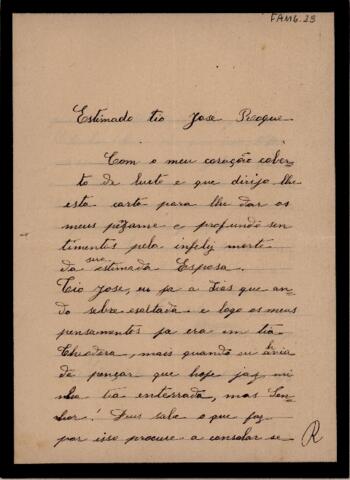 FAMG.23
Estimado tio Jose Roque
Com o meu coração cober-
to de lucto e que dirijo lhe
esta carta para lhe dar os
meus pezame e profundo sen
timentos pela infeliz morte
da sua estimada Esposa.
Tio Jose, eu ja a dias que an-
do sobre esaltada e logo os meus
pensamentos ja era em tia
Theodora, mais quando eu avia
de pençar que hoje jaz mi
nha tia enterrada, mas Sen
hor! Deus sabe o que faz
por isso procure a consolar se
R